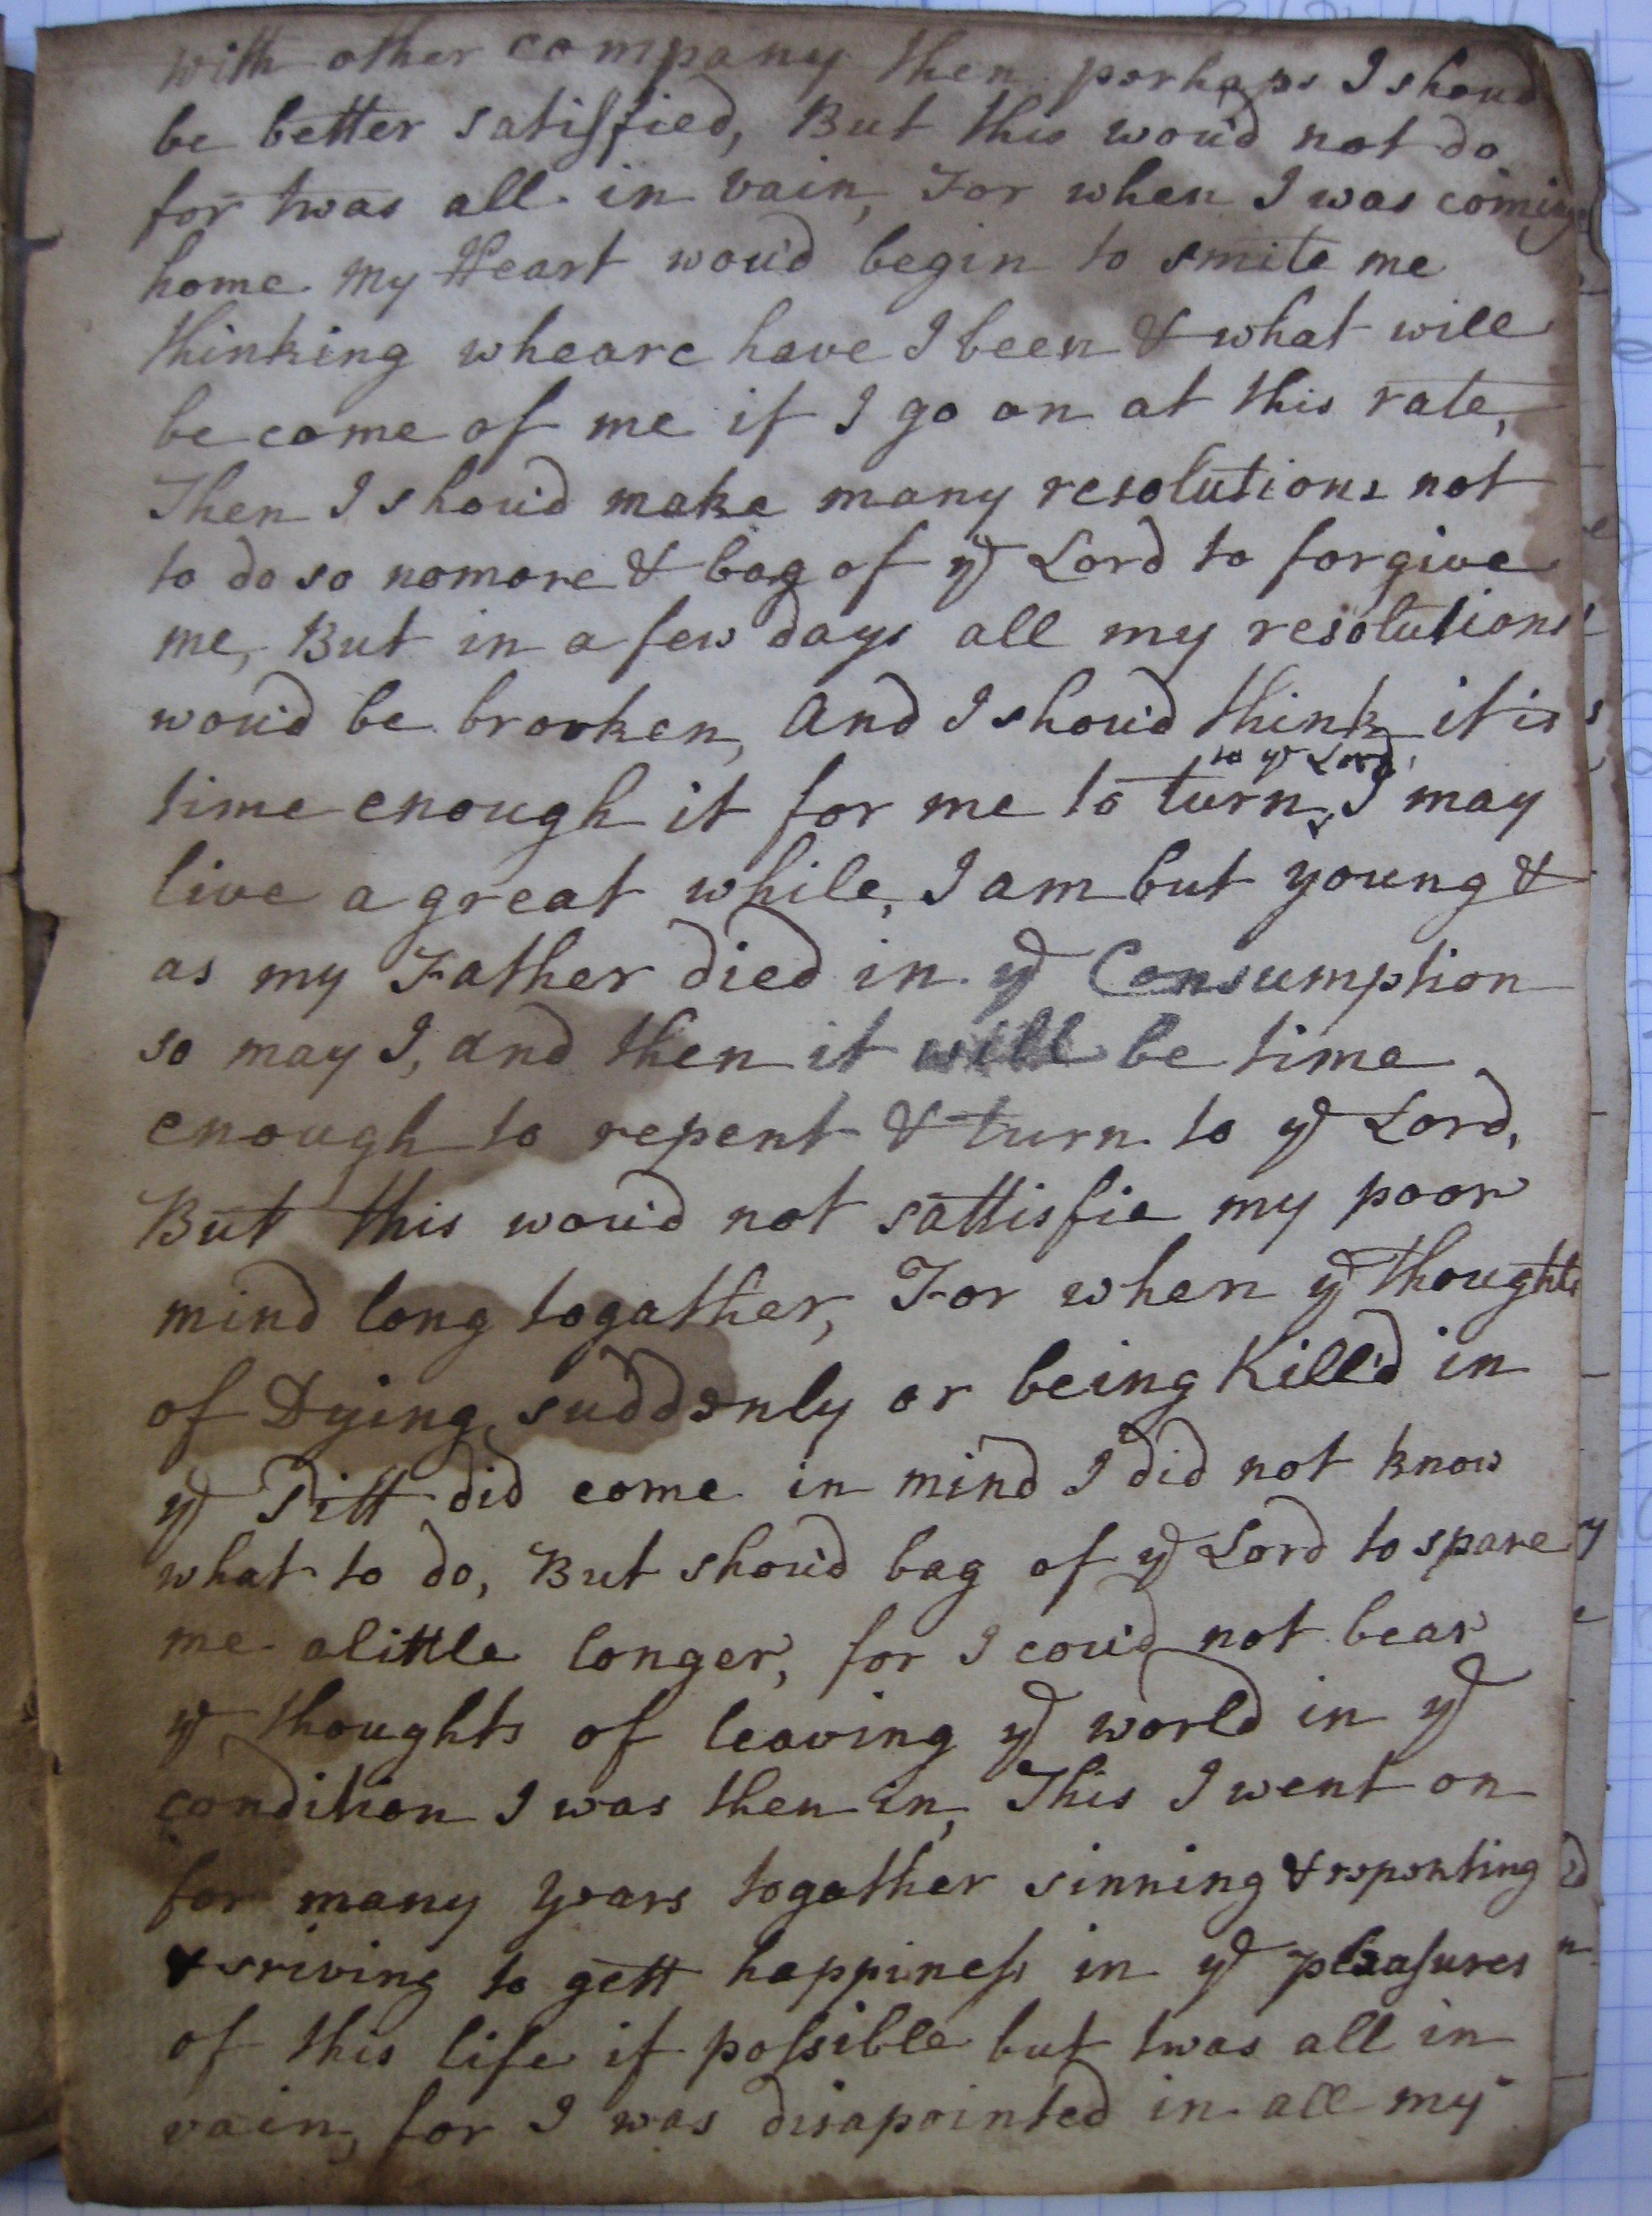 with other company then perhaps I shou'd
be better satisfied, But this wou'd not do
for twas all in vain, For when I was coming
home my Heart wou'd begin to smite me
thinking wheare have I been & what will
be come of me if I go on at this rate,
Then I shou'd make many resolutions not
to do so nomore & bag of ye Lord to forgive
me, But in a few days all my resolutions
wou'd be brooken, And I shou'd think it is
to ye Lord,
time enough it for me to turn ‸ I may
live a great while, I am but young &
as my Father died in ye Consumption
so may I, and then it will be time
enough to repent & turn to ye Lord,
But this wou'd not sattisfie my poor
mind long togather, For when ye thoughts
of Dying suddenly or being Kill'd in
ye Pitt did come in mind I did not know
what to do, But shou'd bag of ye Lord to spare
me alittle longer, for I cou'd not bear
ye thoughts of leaving ye world in ye
condition I was then in, This I went on
for many years togather sinning & repenting
& sriving to gett happineſs in ye pleaſures
of this life if poſsible but twas all in
vain, for I was disapointed in all my